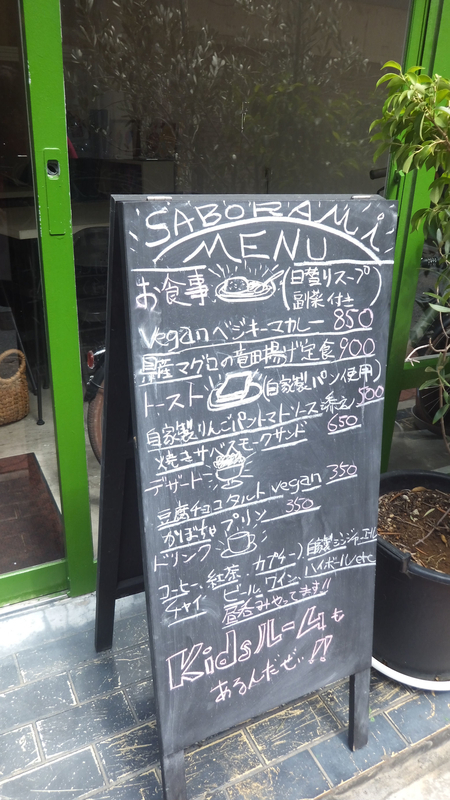 SABORAMi
MENU
お食事 (日替りスープ
副菜付き)
Veganベジキーマカレー 850
県産マグロの竜田揚げ定食 900
トースト (自家製パン使用)
自家製りんごパントマトソース添え 500
焼きサバスモークサンド 650
デザート
豆腐チョコタルト vegan 350
かぼちゃプリン 350
ドリンク
コーヒー、紅茶、カプチーノ 自家製ジンジャーエール
チャイ ビール、ワイン、ハイボールetc
昼呑みやってます!!
Kidsルームも
あるんだぜぃ!!